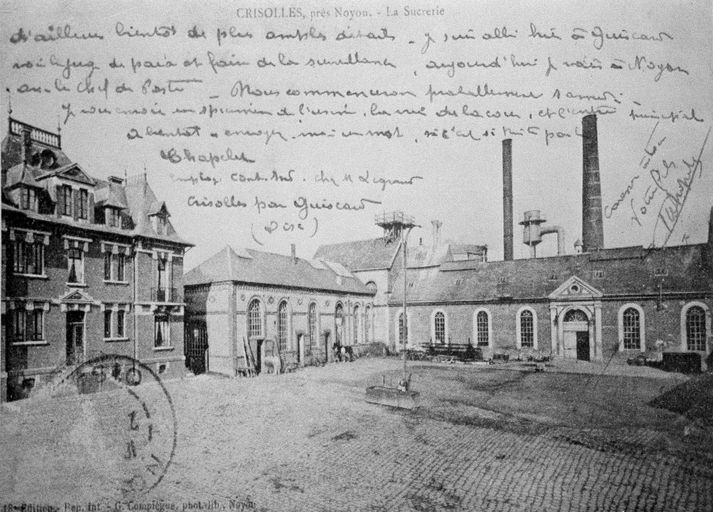 CRISOLLES, près Noyon. - La Sucrerie
d'ailleurs bientôt de plus amples détails - Je suis allé hier à Guiscard
de paix et faire de la surveillance, aujourd'hui je vais à Noyon
avec le chef de Poste - Nous commencerons probablement samedi
Je vous envoie un spécimen de l'usine, la vue de la cour, et l'entrée principal
A bientôt - envoyez moi un mot, si c'est si tôt
Chapelet
employé cont. Ind. chez M Legrand
Crisolles par Guiscard
(Oise)
18e Edition - Rep. Int. - G. Compiègne, phot.-lib., Noyon